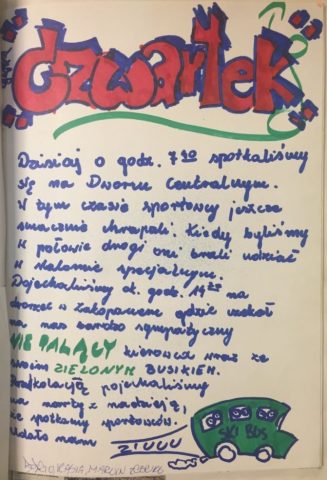 czwartek
Dzisiaj o godz. 7 30 spotkaliśmy
się na Dworcu Centralnym.
W tym czasie sportowcy jeszcze
smacznie chrapali. Kiedy byliśmy
w połowie drogi oni brali udział
w slalomie specjalnym.
Dojechaliśmy o godz. na
dworzec w Zakopanem gdzie czekał
na nas bardzo sympatyczny
NIE PALĄCY kierowca wraz ze
swoim ZIELONYM BUSIKIEM.
pojechaliśmy
na narty z nadzieją,
że spotkamy sportowców.
Udało nam
ZIUUU
SKI BUS
KASIA, MARCIN